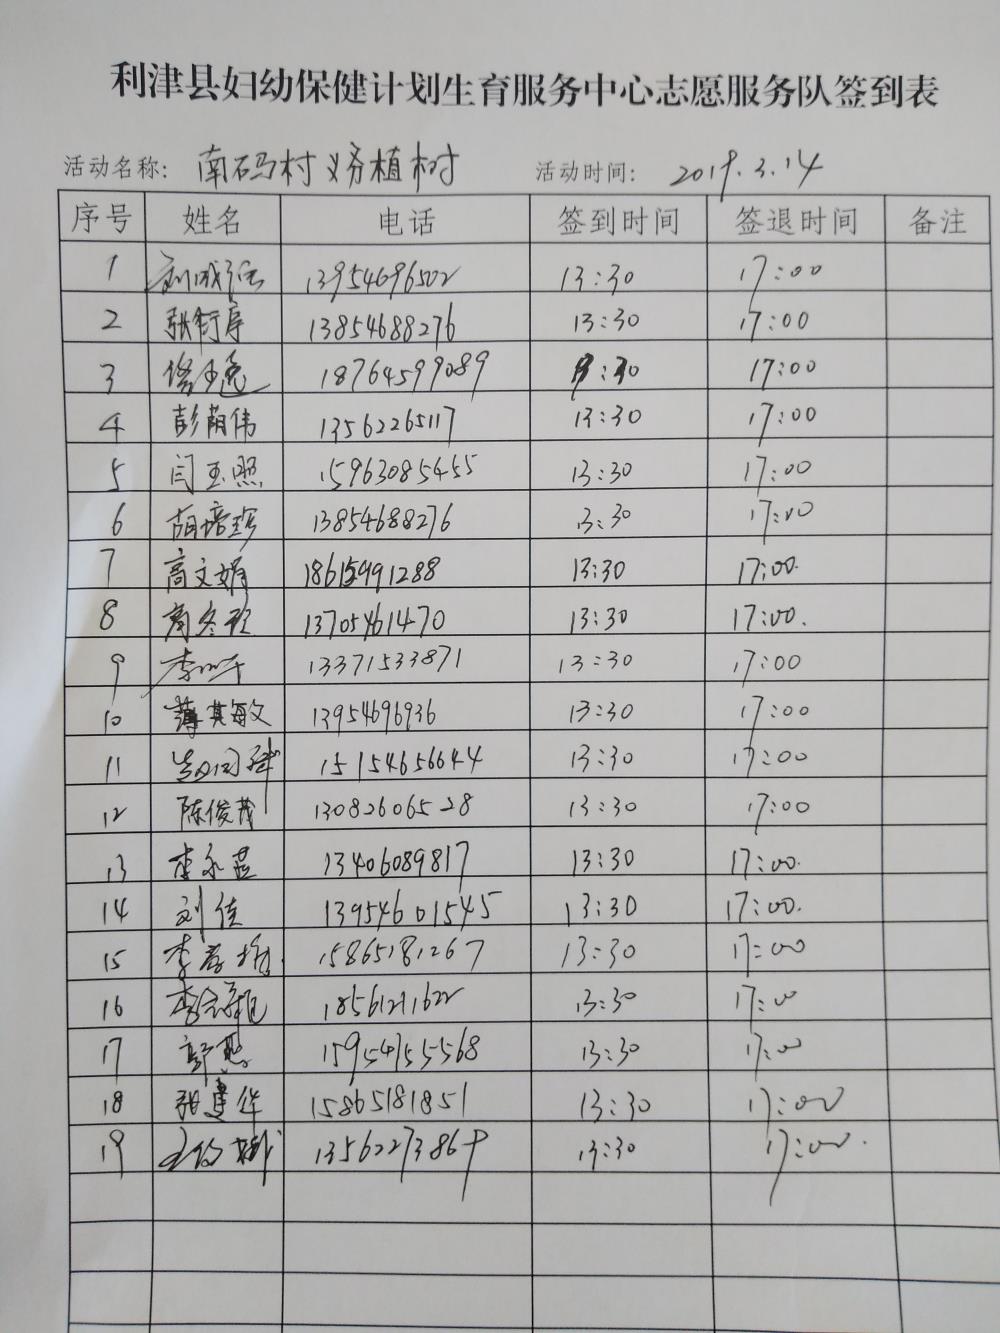 利津县妇幼保健计划生育服务中心志愿服务队签到表
活动名称: 南码村义务植树 活动时间: 2019.3.14
序号 姓名 电话 签到时间 签退时间 备注
1 13954696502 13:30 17:00
2 张衍序 13854688276 13:30 17:00
3 18764599089 17:00
4 彭荫伟 13562265117 13:30 17:00
5 闫玉照 15963085455 13:30 17:00
6 13854688276 13:30 17:00
7 高文娟 13:30 17:00.
8 13705461470 13:30 17:00.
9 13371533871 13:30 17:00
10 薄其敏 13954696936 13:30 17:00
11 15154656644 13:30 17:00
12 陈俊茂 13082606528 13:30 17:00
13 13406089817 13:30 17:00.
14 刘佳 13954601545 13:30 17:00.
15 15865181267 13:30 17:00
16 18561211622 13:30 17:00
17 15954755568 13:30 17:00
18 张建华 15865181851 13:30 17:00
19 13:30 17:00.